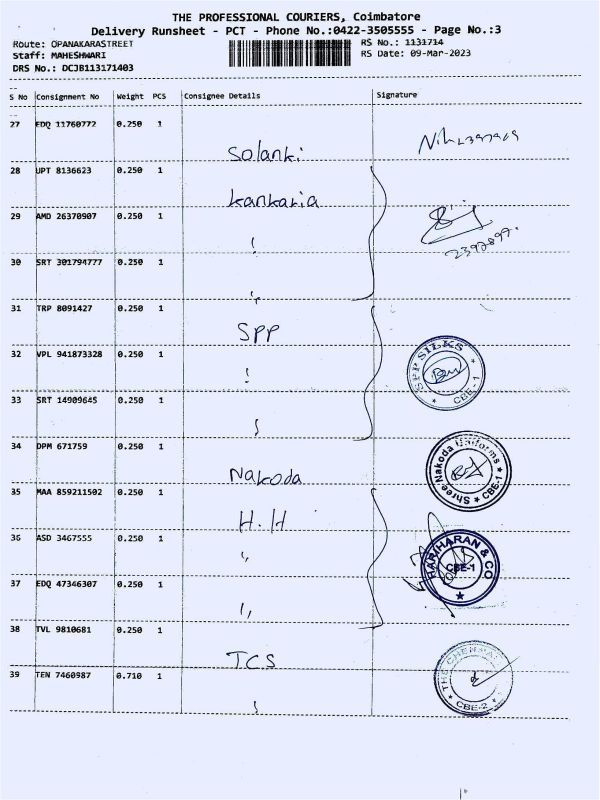 THE PROFESSIONAL COURIERS, Coimbatore
Delivery Runsheet - PCT - Phone No.:0422-3505555 - Page No.:3
Route: OPANAKARASTREET
RS No.: 1131714
Staff: MAHESHWARI
RS Date: 09-Mar-2023
DRS No.: DCJB113171403
S No Consignment No Weight PCS Consignee Details Signature
27 EDQ 11760772 0.250 1 Solanki
28 UPT 8136623 0.250 1 kankaria
29 AMD 26370907 0.250 1
30 SRT 301794777 0.250 1
31 TRP 8091427 0.250 1 SPP
32 VPL 941873328 0.250 1 SPP SILKS CBE - 1
33 SRT 14909645 0.250 1
34 DPM 671759 0.250 1 Nakoda Shree Nakoda Uniforms CBE-1
35 MAA 859211502 0.250 1 H.H
36 ASD 3467555 0.250 1 HARIHARAN & CO CBE-1
37 EDQ 47346307 0.250 1
38 TVL 9810681 0.250 1 TCS
39 TEN 7460987 0.710 1 THE CHENNAI CBE-2